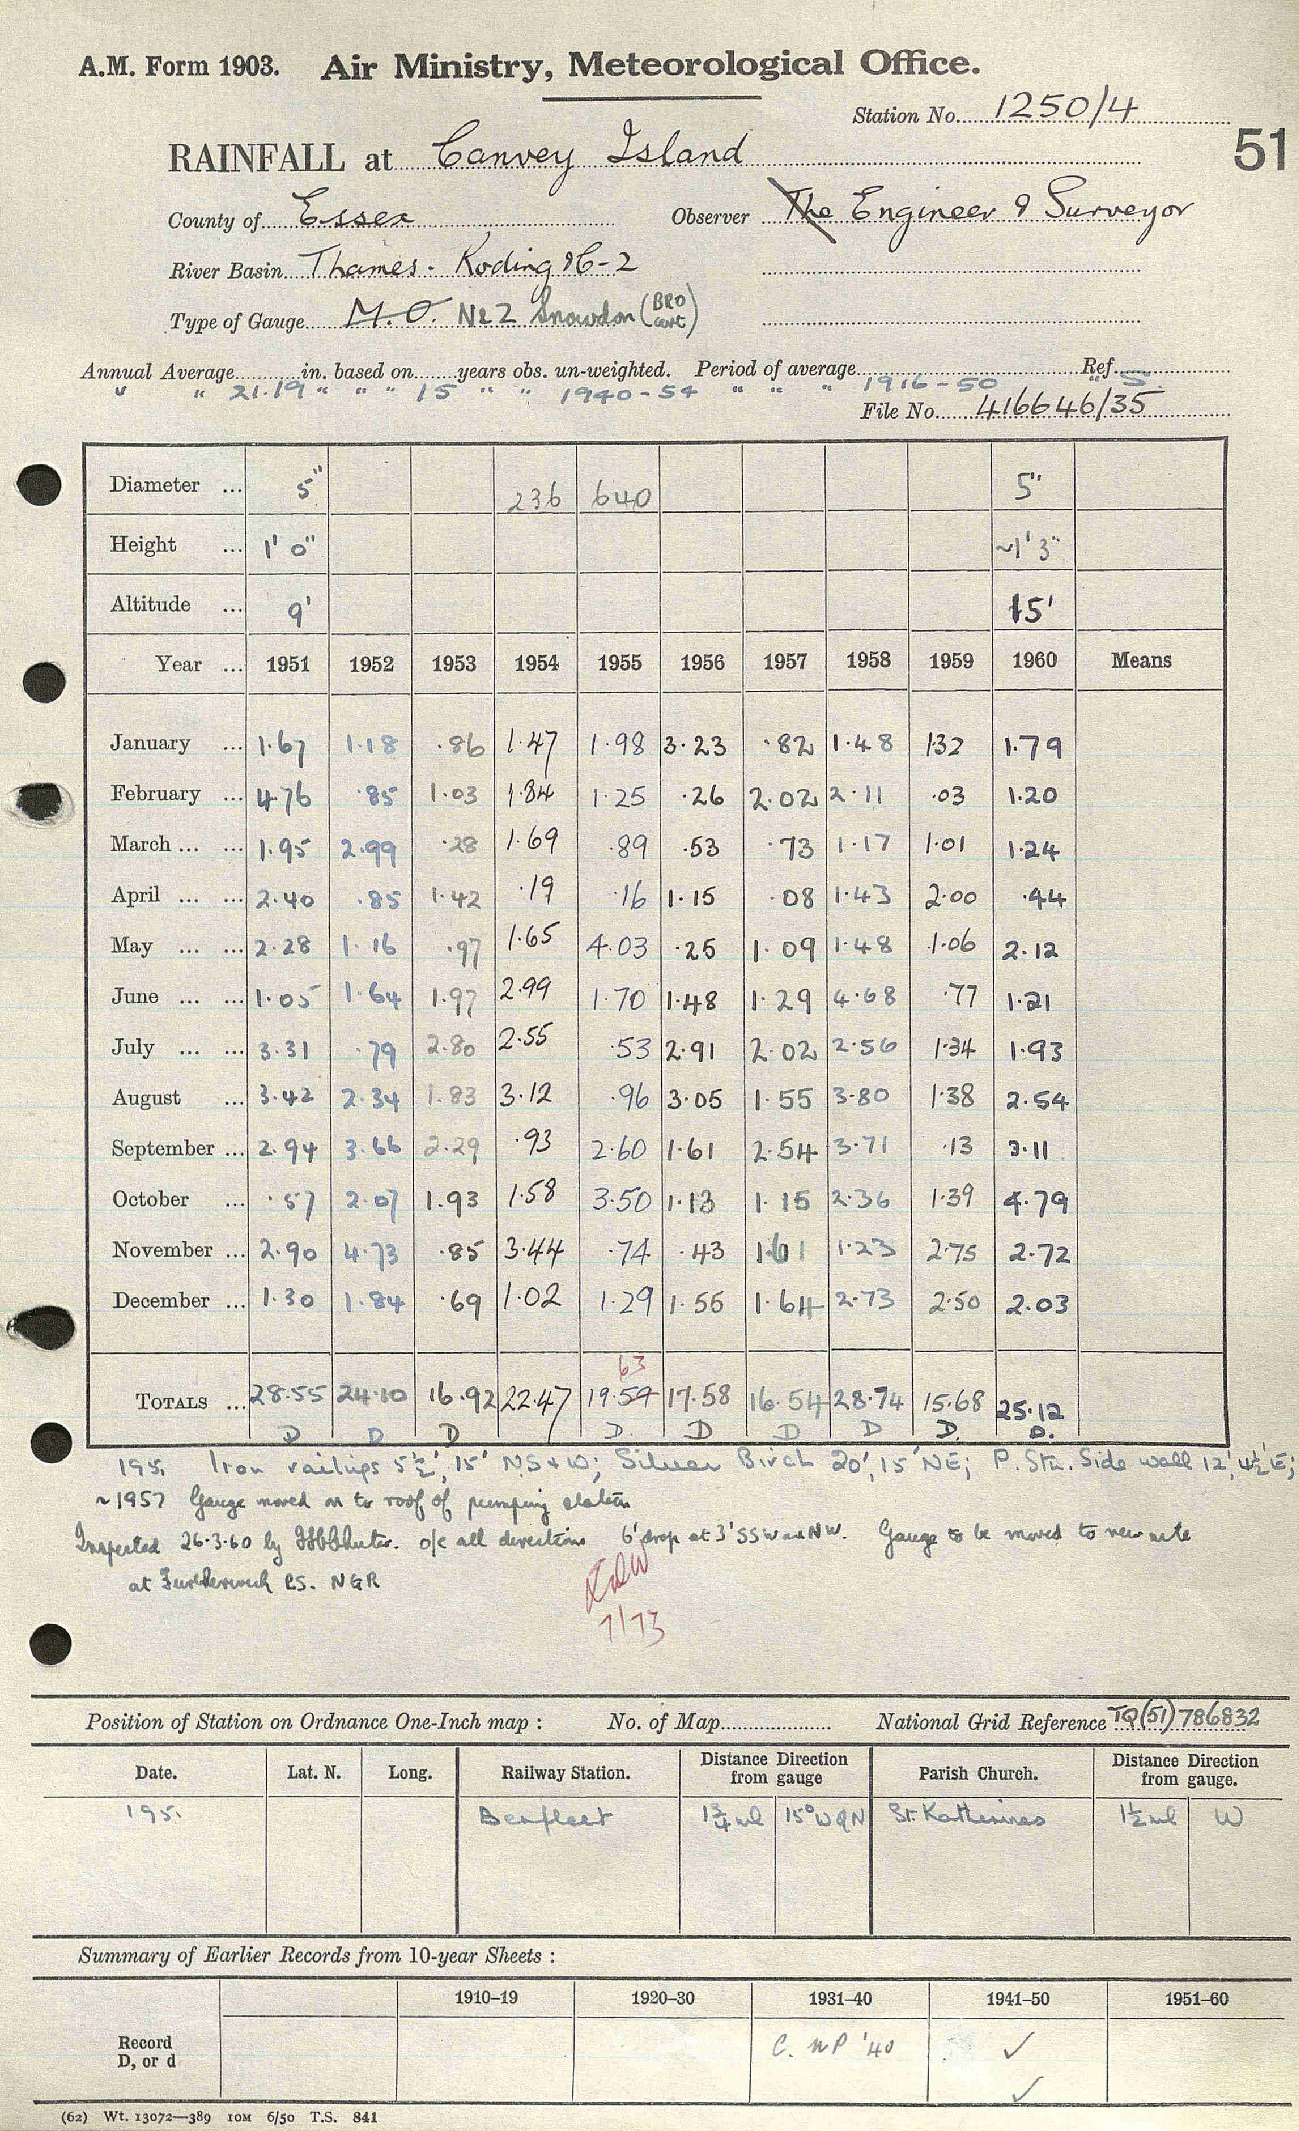 A.M. Form 1903. Air Ministry, Meteorological Office.
Station No. 1250/4
51
RAINFALL at Canvey Island
County of Essex Observer The Engineer & Surveyor
River Basin Thames - Roding &c-2
Type of Gauge M.O. No 2 Snowdon (BRO cert)
Annual Average in. based on years obs. un-weighted. Period of average Ref.
" " 21.19 " " " 15 " " 1940-54 " " " 1916-50 " 5
File No. 416646/35
Diameter ... 5" 236 640 5"
Height ... 1' 0" ~1' 3"
Altitude ... 9' 15'
Year ... 1951 1952 1953 1954 1955 1956 1957 1958 1959 1960 Means
January ... 1.67 1.18 .86 1.47 1.98 3.23 .82 1.48 1.32 1.79
February ... 4.76 .85 1.03 1.84 1.25 .26 2.02 2.11 .03 1.20
March ... ... 1.95 2.99 .28 1.69 .89 .53 .73 1.17 1.01 1.24
April ... ... 2.40 .85 1.42 .19 .16 1.15 .08 1.43 2.00 .44
May ... ... 2.28 1.16 .97 1.65 4.03 .25 1.09 1.48 1.06 2.12
June ... ... 1.05 1.64 1.97 2.99 1.70 1.48 1.29 4.68 .77 1.21
July ... ... 3.31 .79 2.80 2.55 .53 2.91 2.02 2.56 1.34 1.93
August ... 3.42 2.34 1.83 3.12 .96 3.05 1.55 3.80 1.38 2.54
September ... 2.94 3.66 2.29 .93 2.60 1.61 2.54 3.71 .13 3.11
October ... .57 2.07 1.93 1.58 3.50 1.13 1.15 2.36 1.39 4.79
November ... 2.90 4.73 .85 3.44 .74 .43 1.61 1.23 2.75 2.72
December ... 1.30 1.84 .69 1.02 1.29 1.55 1.64 2.73 2.50 2.03
63
TOTALS ... 28.55 24.10 16.92 22.47 19.59 17.58 16.54 28.74 15.68 25.12
D D D D. D D D D. D.
195. Iron railings 5½', 15' N S & W; Silver Birch 20', 15' NE; P. Stn. Side wall 12', 4½' E;
~1957 Gauge moved on to roof of pumping station
Inspected 26.3.60 by o/c all directions 6' drop at 3' SSW and NW. Gauge to be moved to new site
at PS. NGR
7/73
Position of Station on Ordnance One-Inch map : No. of Map National Grid Reference TQ(51)786832
Date. Lat. N. Long. Railway Station. Distance Direction from gauge Parish Church. Distance Direction from gauge.
195. Benfleet 1¾ ml 15° W of N St. Katherines 1½ ml W
Summary of Earlier Records from 10-year Sheets :
1910–19 1920–30 1931–40 1941–50 1951–60
Record D, or d C. NP '40 ✓
✓
(62) Wt. 13072—389 10M 6/50 T.S. 841